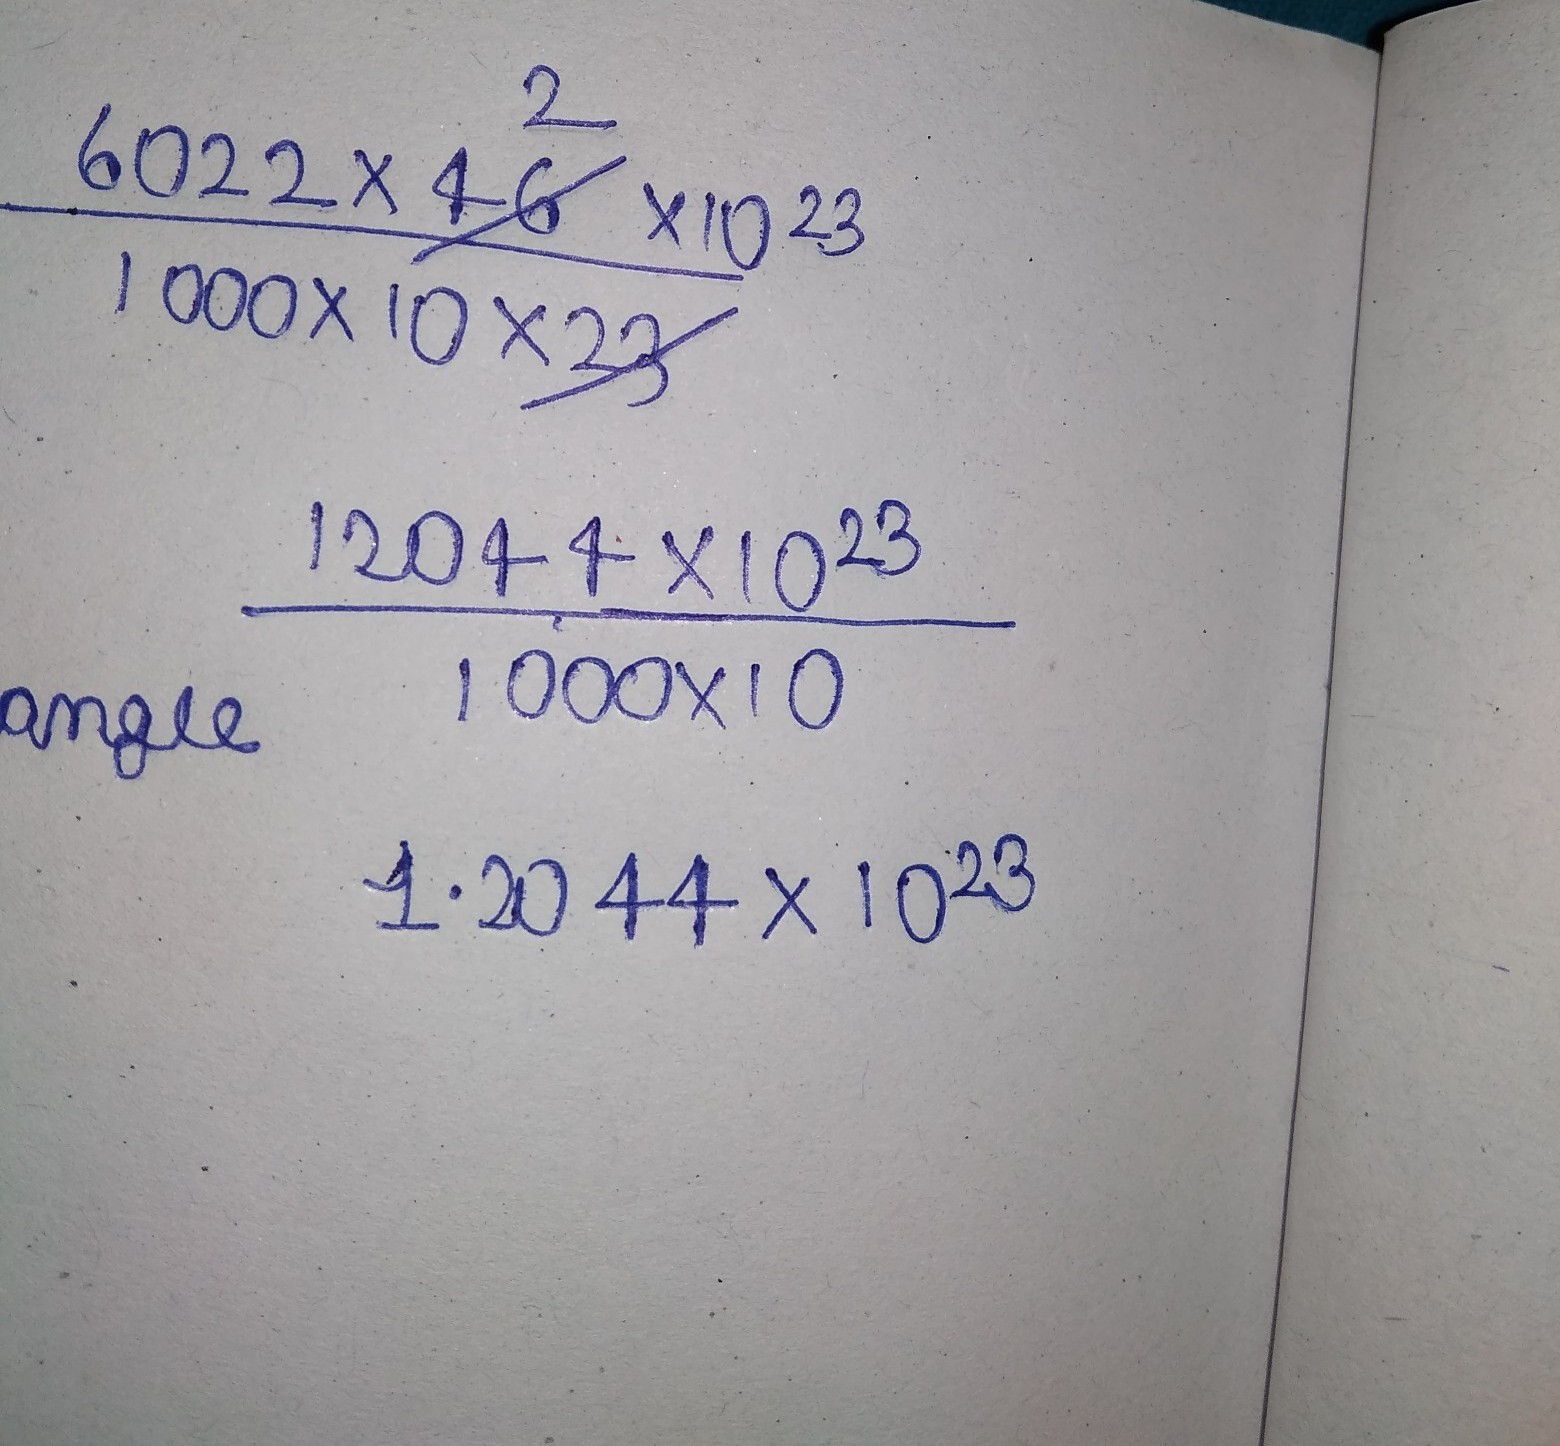 2
6022 × 46 × 10 23
1000 × 10 × 23
12044 × 10 23
1000 × 10
angle
1.2044 × 10 23